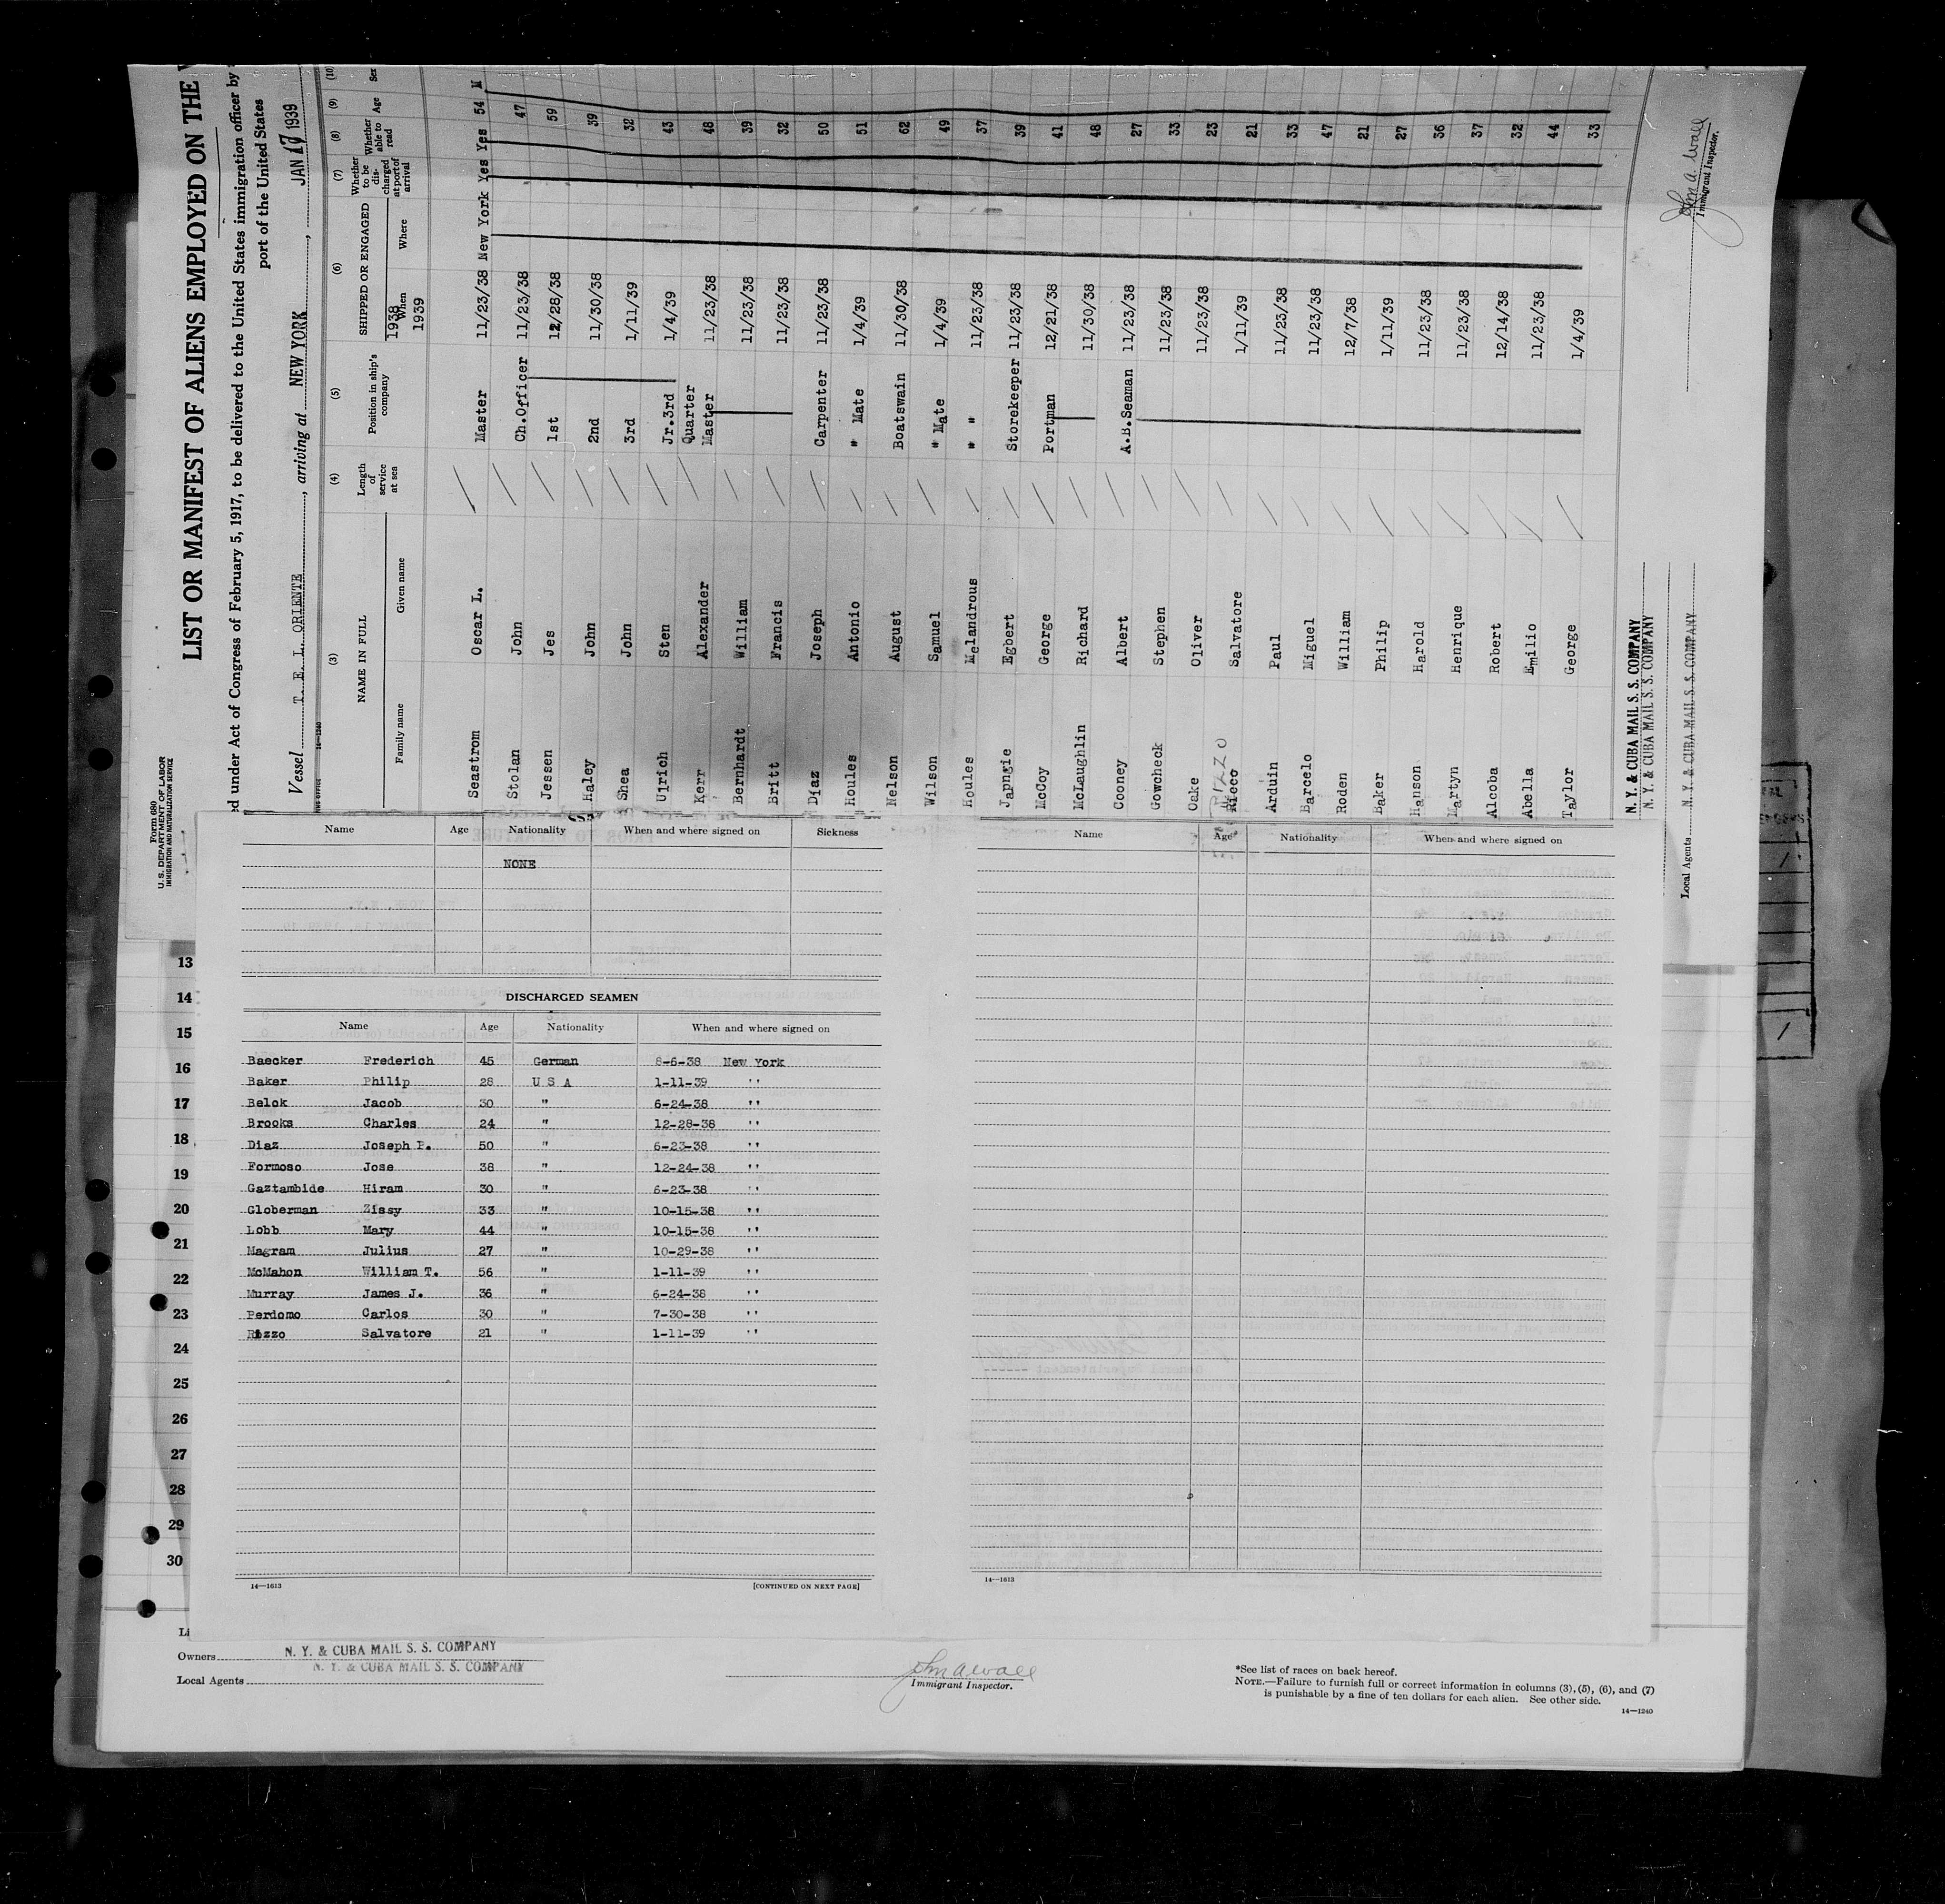 Form 680
U. S. DEPARTMENT OF LABOR
IMMIGRATION AND NATURALIZATION SERVICE
LIST OR MANIFEST OF ALIENS EMPLOYED ON THE
ed under Act of Congress of February 5, 1917, to be delivered to the United States immigration officer by
port of the United States
Vessel T. E. L. ORIENTE, arriving at NEW YORK, JAN 17 1939
14-1240
(3) (4) (5) (6) (7) (8) (9) (10)
NAME IN FULL Length of service at sea Position in ship's company SHIPPED OR ENGAGED Whether to be discharged at port of arrival Whether able to read Age Sex
Family name Given name When Where
1938
1939
Seastrom Oscar L. Master 11/23/38 New York Yes Yes 54 M
Stolan John Ch.Officer 11/23/38 47
Jessen Jes 1st 12/28/38 59
Haley John 2nd 11/30/38 39
Shea John 3rd 1/11/39 32
Ulrich Sten Jr.3rd 1/4/39 43
Kerr Alexander Quarter Master 11/23/38 48
Bernhardt William 11/23/38 39
Britt Francis 11/23/38 32
Diaz Joseph Carpenter 11/23/38 50
Houles Antonio " Mate 1/4/39 51
Nelson August Boatswain 11/30/38 62
Wilson Samuel " Mate 1/4/39 49
Houles Melandrous " " 11/23/38 37
Japngie Egbert Storekeeper 11/23/38 39
McCoy George Portman 12/21/38 41
McLaughlin Richard 11/30/38 48
Cooney Albert A.B.Seaman 11/23/38 27
Gowcheck Stephen 11/23/38 33
Oake Oliver 11/23/38 23
RIZZO
Ricco Salvatore 1/11/39 21
Arduin Paul 11/23/38 33
Barcelo Miguel 11/23/38 47
Roden William 12/7/38 21
Baker Philip 1/11/39 27
Hanson Harold 11/23/38 36
Martyn Henrique 11/23/38 37
Alcoba Robert 12/14/38 32
Abella Emilio 11/23/38 44
Taylor George 1/4/39 33
N. Y. & CUBA MAIL S. S. COMPANY
N. Y. & CUBA MAIL S. S. COMPANY
Local Agents N. Y. & CUBA MAIL S. S. COMPANY
John A. Wall
Immigrant Inspector.
Name Age Nationality When and where signed on Sickness
NONE
DISCHARGED SEAMEN
Name Age Nationality When and where signed on
Baecker Frederich 45 German 8-6-38 New York
Baker Philip 28 U S A 1-11-39 ''
Belok Jacob 30 " 6-24-38 ''
Brooks Charles 24 " 12-28-38 ''
Diaz Joseph P. 50 " 6-23-38 ''
Formoso Jose 38 " 12-24-38 ''
Gaztambide Hiram 30 " 6-23-38 ''
Globerman Zissy 33 " 10-15-38 ''
Lobb Mary 44 " 10-15-38 ''
Magram Julius 27 " 10-29-38 ''
McMahon William T. 56 " 1-11-39 ''
Murray James J. 36 " 6-24-38 ''
Perdomo Carlos 30 " 7-30-38 ''
Rizzo Salvatore 21 " 1-11-39 ''
14—1613 [CONTINUED ON NEXT PAGE]
Name Age Nationality When and where signed on
14—1613
13
14
15
16
17
18
19
20
21
22
23
24
25
26
27
28
29
30
Li
Owners N. Y. & CUBA MAIL S. S. COMPANY
N. Y. & CUBA MAIL S. S. COMPANY
Local Agents
John A Wall
Immigrant Inspector.
*See list of races on back hereof.
NOTE.—Failure to furnish full or correct information in columns (3), (5), (6), and (7)
is punishable by a fine of ten dollars for each alien. See other side.
14—1240